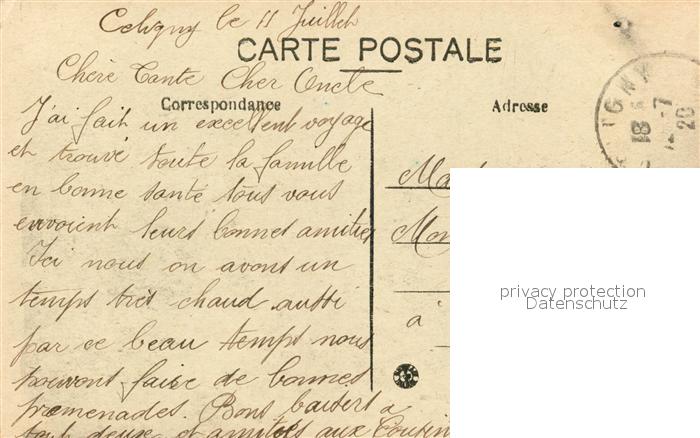 le 11 Juillet
CARTE POSTALE
Chère Tante Cher Oncle
Correspondance
Adresse
J'ai fait un excellent voyage
et trouvé toute la famille
en bonne santé tous vous
envoient leurs bonnes amities
Ici nous on avons un
temps très chaud aussi
par ce beau temps nous
pouvons faire de bonnes
promenades. Bons baisers a
tout deux et amities aux Cousin
à
IGNY
18
-7
20
privacy protection
Datenschutz